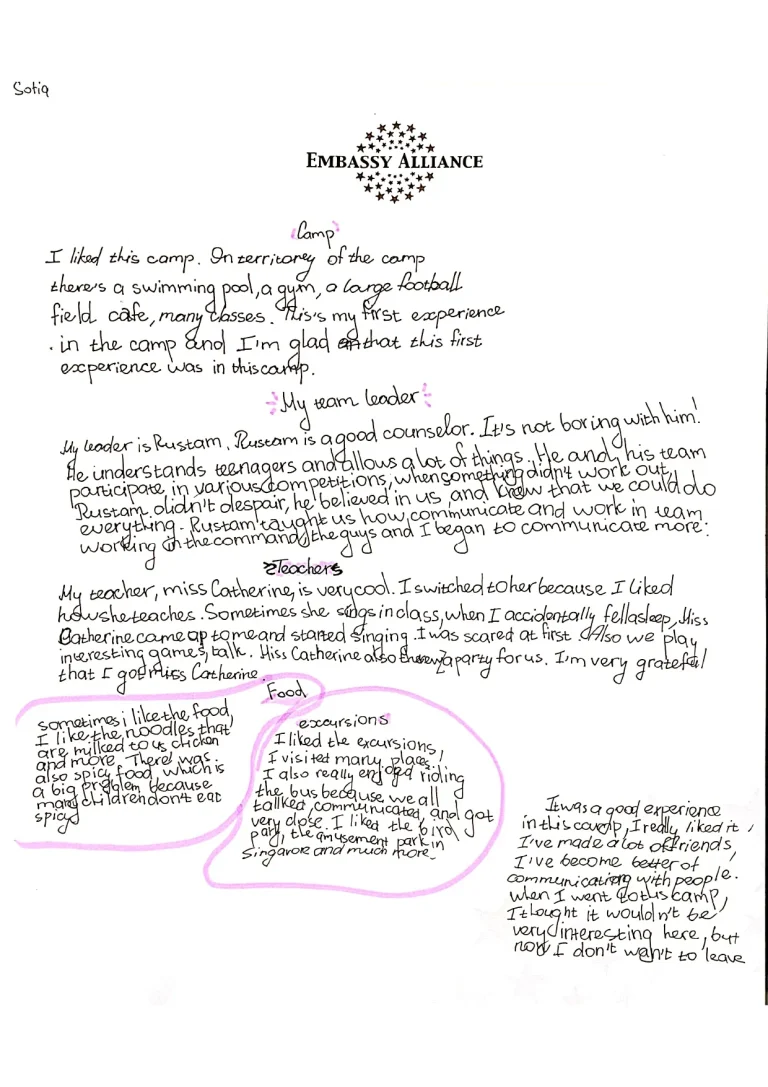 Sotiq
EMBASSY ALLIANCE
Camp
I liked this camp. On territorey of the camp
there's a swimming pool, a gym, a large football
field cafe, many classes. This's my first experience
in the camp and I'm glad that this first
experience was in this camp.
My team leader
My leader is Rustam. Rustam is a good counselor. It's not boring with him!
He understands teenagers and allows a lot of things. He and his team
participate in various competitions, when something didn't work out,
Rustam didn't despair, he believed in us and knew that we could do
everything. Rustam taught us how communicate and work in team
working in the command, the guys and I began to communicate more.
Teachers
My teacher, miss Catherine, is very cool. I switched to her because I liked
how she teaches. Sometimes she sings in class, when I accidentally fell asleep, Miss
Catherine came up to me and started singing. I was scared at first. Also we play
interesting games, talk. Miss Catherine also a party for us. I'm very grateful
that I got miss Catherine.
Food
sometimes i like the food,
I like the noodles that
are milked to us chicken
and more. There was
also spicy food, which is
a big problem because
many children don't eat
spicy
excursions
I liked the excursions,
I visited many places,
I also really enjoyed riding
the bus because we all
tallked, communicated, and got
very close. I liked the bird
park, the amusement park in
Singapore and much more.
It was a good experience
in this camp, I really liked it,
I've made a lot of friends,
I've become better of
communicating with people.
when I went to this camp,
I thought it wouldn't be
very interesting here, but
now I don't want to leave